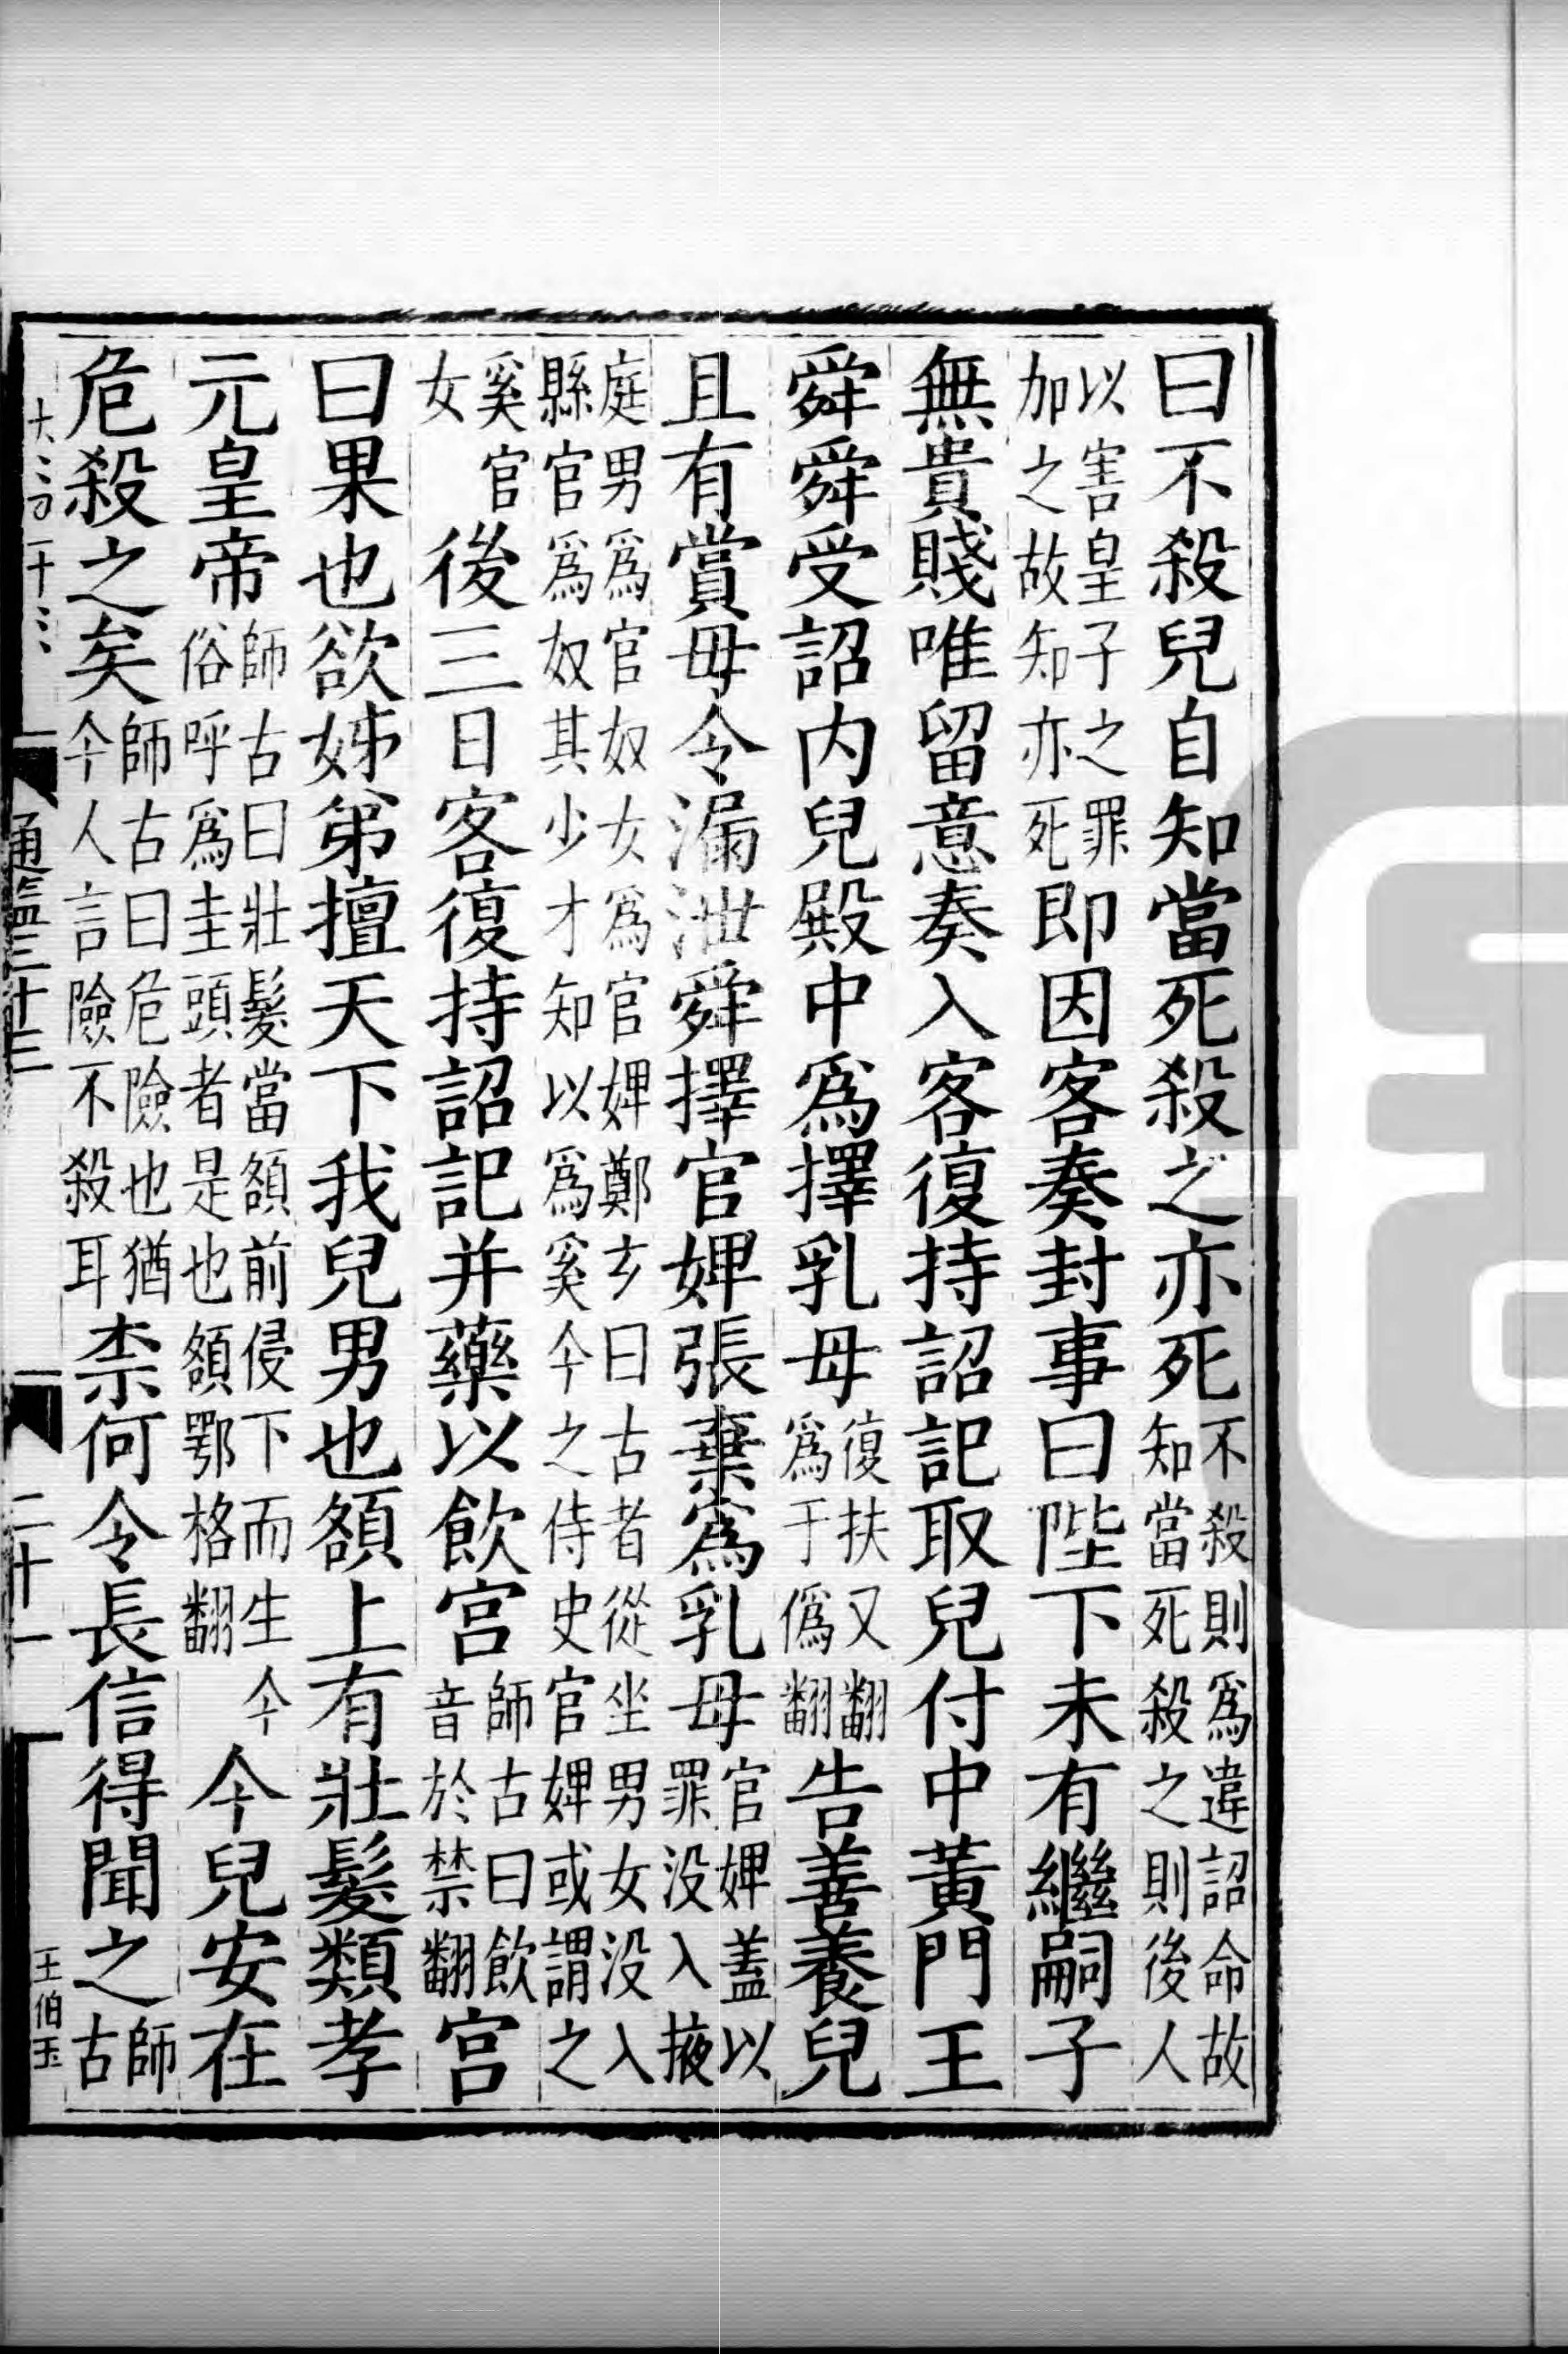 曰不殺兒自知當死殺之亦死不殺則爲違詔命故知當死殺之則後人
以害皇子之罪加之故知亦死即因客奏封事曰陛下未有繼嗣子
無貴賤唯留意奏入客復持詔記取兒付中黃門王
舜舜受詔内兒殿中爲擇乳母復扶又翻爲于僞翻告善養兒
且有賞毋令漏泄舜擇官婢張棄爲乳母官婢蓋以罪没入掖
庭男爲官奴女爲官婢鄭玄曰古者從坐男女没入縣官爲奴其少才知以爲奚今之侍史官婢或謂之
奚官女後三日客復持詔記并藥以飲宫師古曰飲音於禁翻宫
曰果也欲姊弟擅天下我兒男也額上有壯髮類孝
元皇帝師古曰壯髮當額前侵下而生今俗呼爲圭頭者是也額鄂格翻今兒安在
危殺之矣師古曰危險也猶今人言險不殺耳柰何令長信得聞之師古
通鑑三十三
二十一
王伯玉